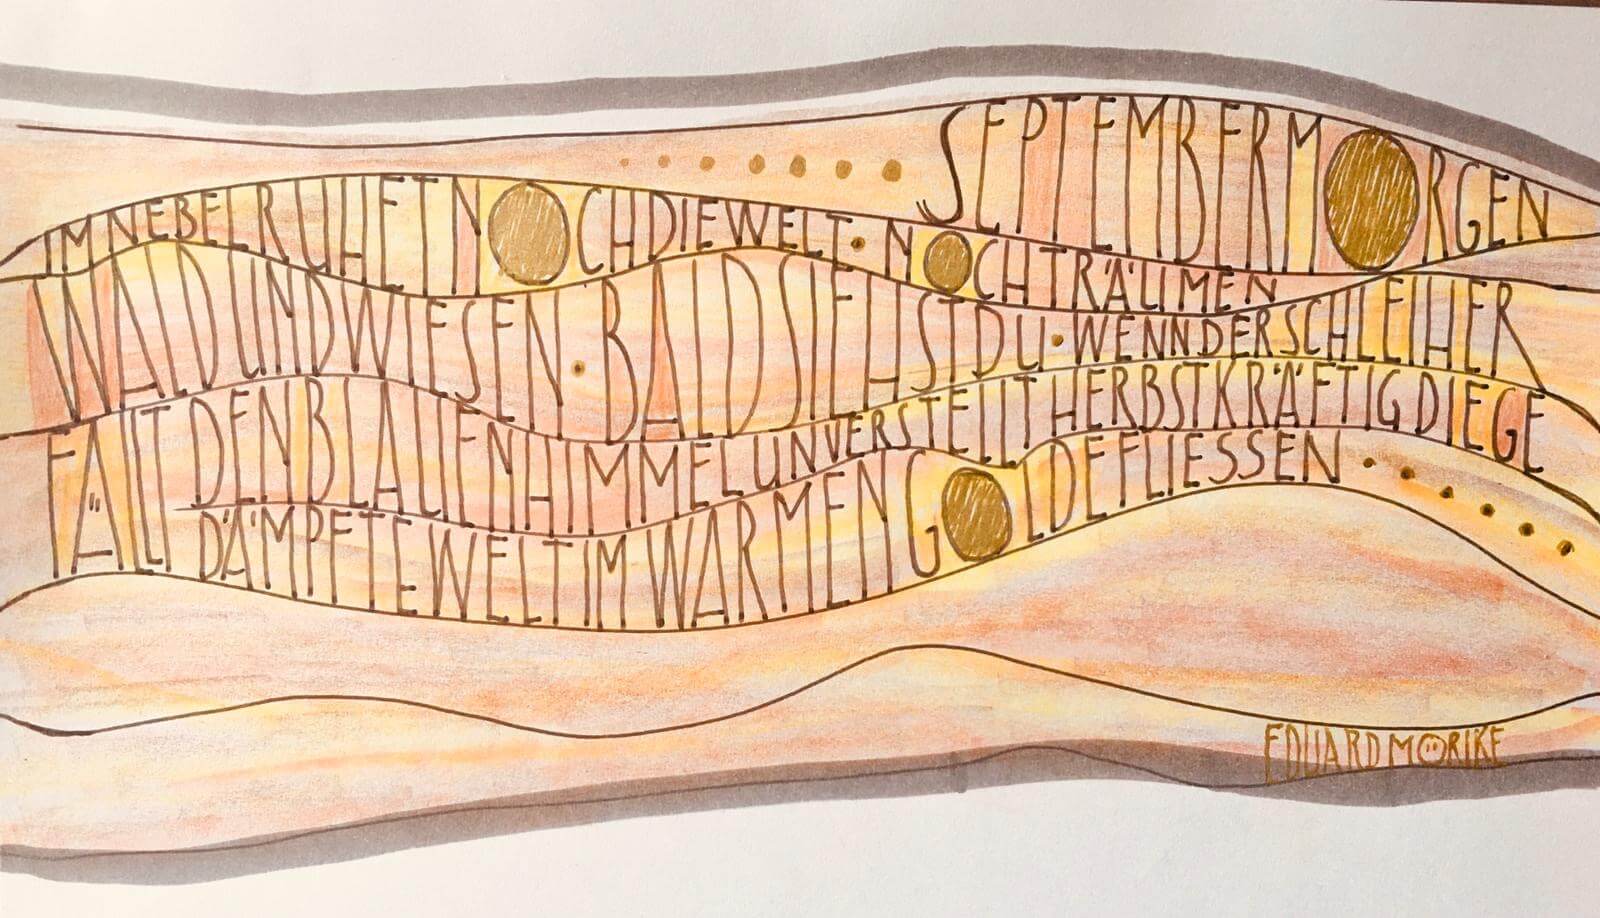 SEPTEMBERMORGEN
IM NEBEL RUHET NOCH DIE WELT · NOCH TRÄUMEN
WALD UND WIESEN · BALD SIEHST DU · WENN DER SCHLEIHER
FÄLLT DEN BLAUEN HIMMEL UNVERSTELLT HERBSTKRÄFTIG DIE GE
DÄMPFTE WELT IM WARMEN GOLDE FLIESSEN
EDUARD MÖRIKE